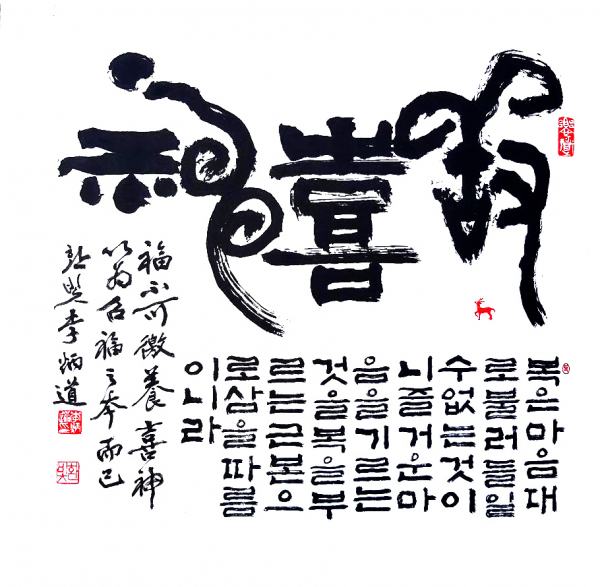 養喜神
복은마음대
로불러들일
수없는것이
니즐거운마
음을기르는
것을복을부
르는근본으
로삼을따름
이니라
福不可徼養喜神
以为召福之本而已
李炳道